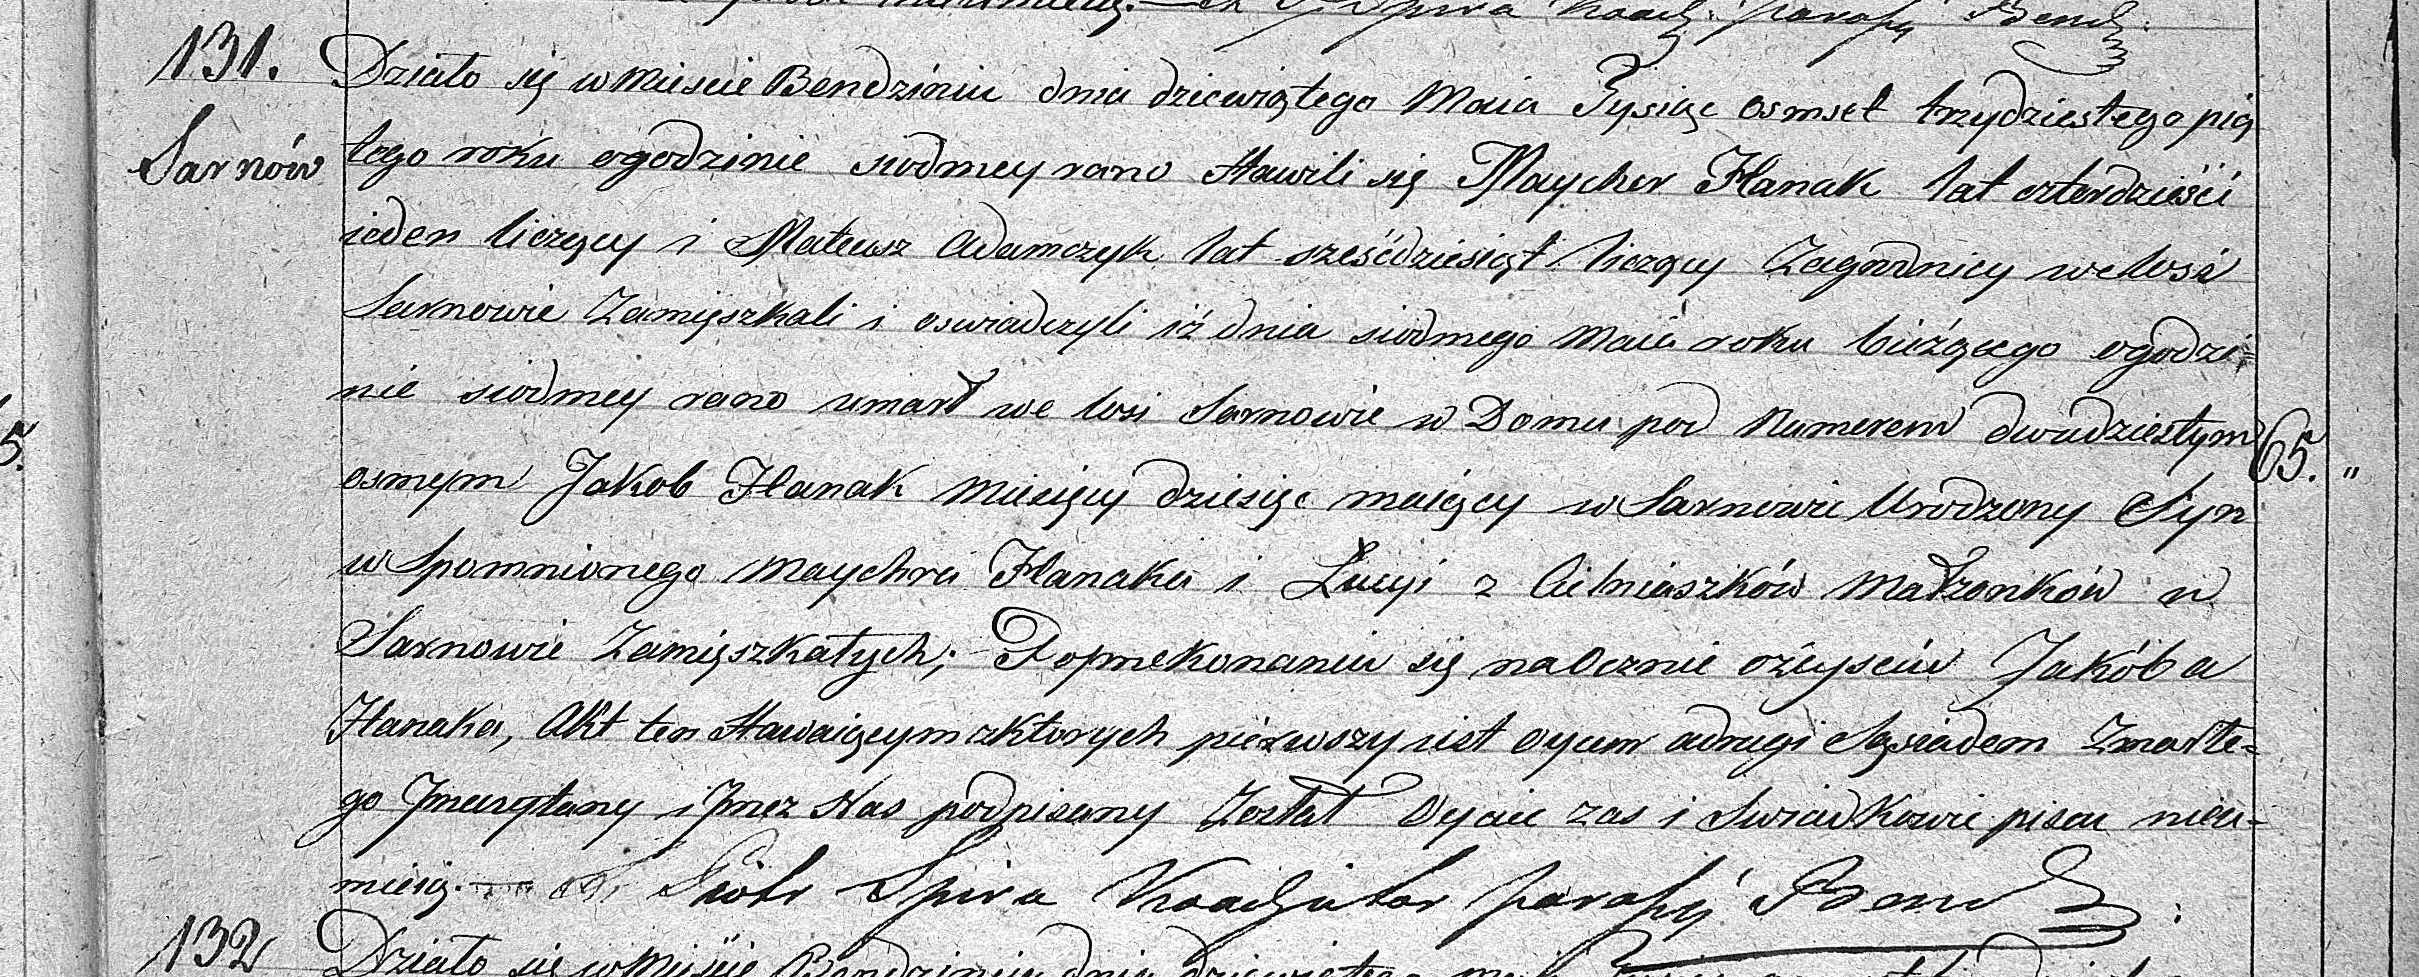 131.
Sarnów
Działo się w Mieście Bendziniu dnia dziewiątego Maia Tysiąc osmset trzydziestego pią
tego roku ogodzinie siodmey rano stawili się Maycher Hanak lat czterdzieści
ieden liczący i Mateusz Adamczyk lat sześćdziesiąt liczący Zagrodnicy we Wsi
Sarnowie Zamięszkali i oswiadczyli iż dnia siodmego Maia roku bieżącego ogodzi=
nie siodmey rano umarł we Wsi Sarnowie w Domu pod Numerem dwudziestym
osmym Jakob Hanak Miesięcy dziesięc maięcy w Sarnowie Urodzony Syn
w Spomnionego Maychra Hanaka i Łucyi z Małżonków w
Sarnowie Zamięszkałych; Po przekonaniu się naocznie ożeyściu Jakóba
Hanaka, Akt ten Stawaiącym zktorych pierwszy iest oycem adrugi Sąsiadem Zmarłe=
go Przeczytany i Przez Nas podpisany Został Oyciec zas i Swiadkowie pisac nieu=
mieią. — Piotr Spira Koadjutor parafij Bend
65. "
5.
132
Działo się w Mieście Bendziniu dnia dziewiątego